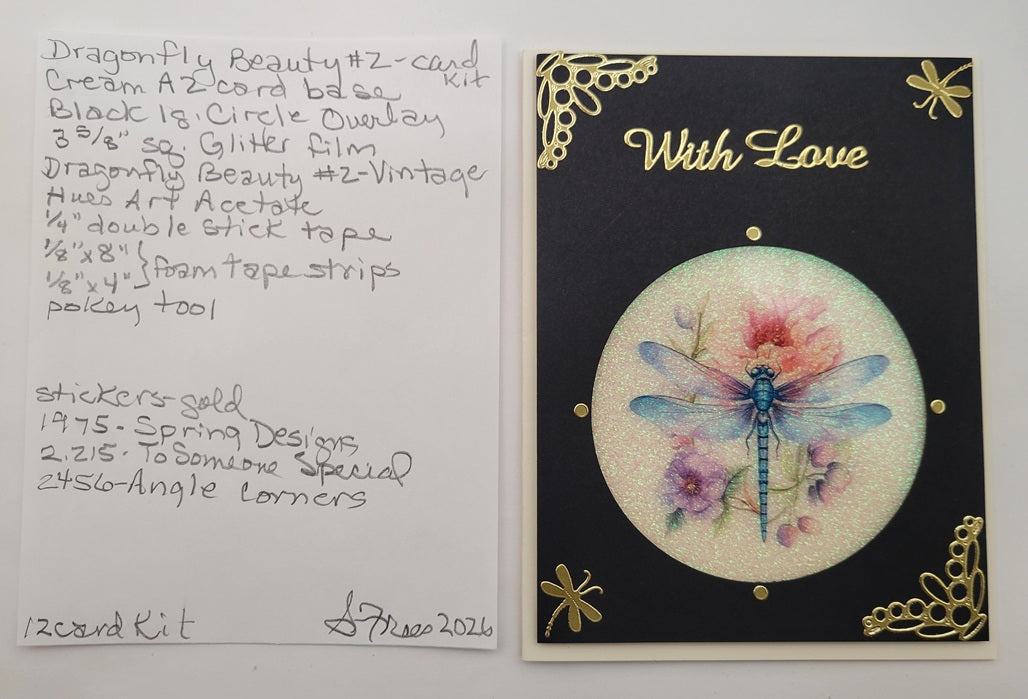 Dragonfly Beauty #2-card
Kit
Cream A2 card base
Black lg. Circle Overlay
3 5/8" sq. Glitter film
Dragonfly Beauty #2-Vintage
Hues Art Acetate
1/4" double stick tape
1/8" x 8" } foam tape strips
1/8" x 4"
pokey tool
stickers-gold
1975- Spring Designs
2.215- To Someone Special
2456-Angle Corners
12 card Kit
2026
With Love